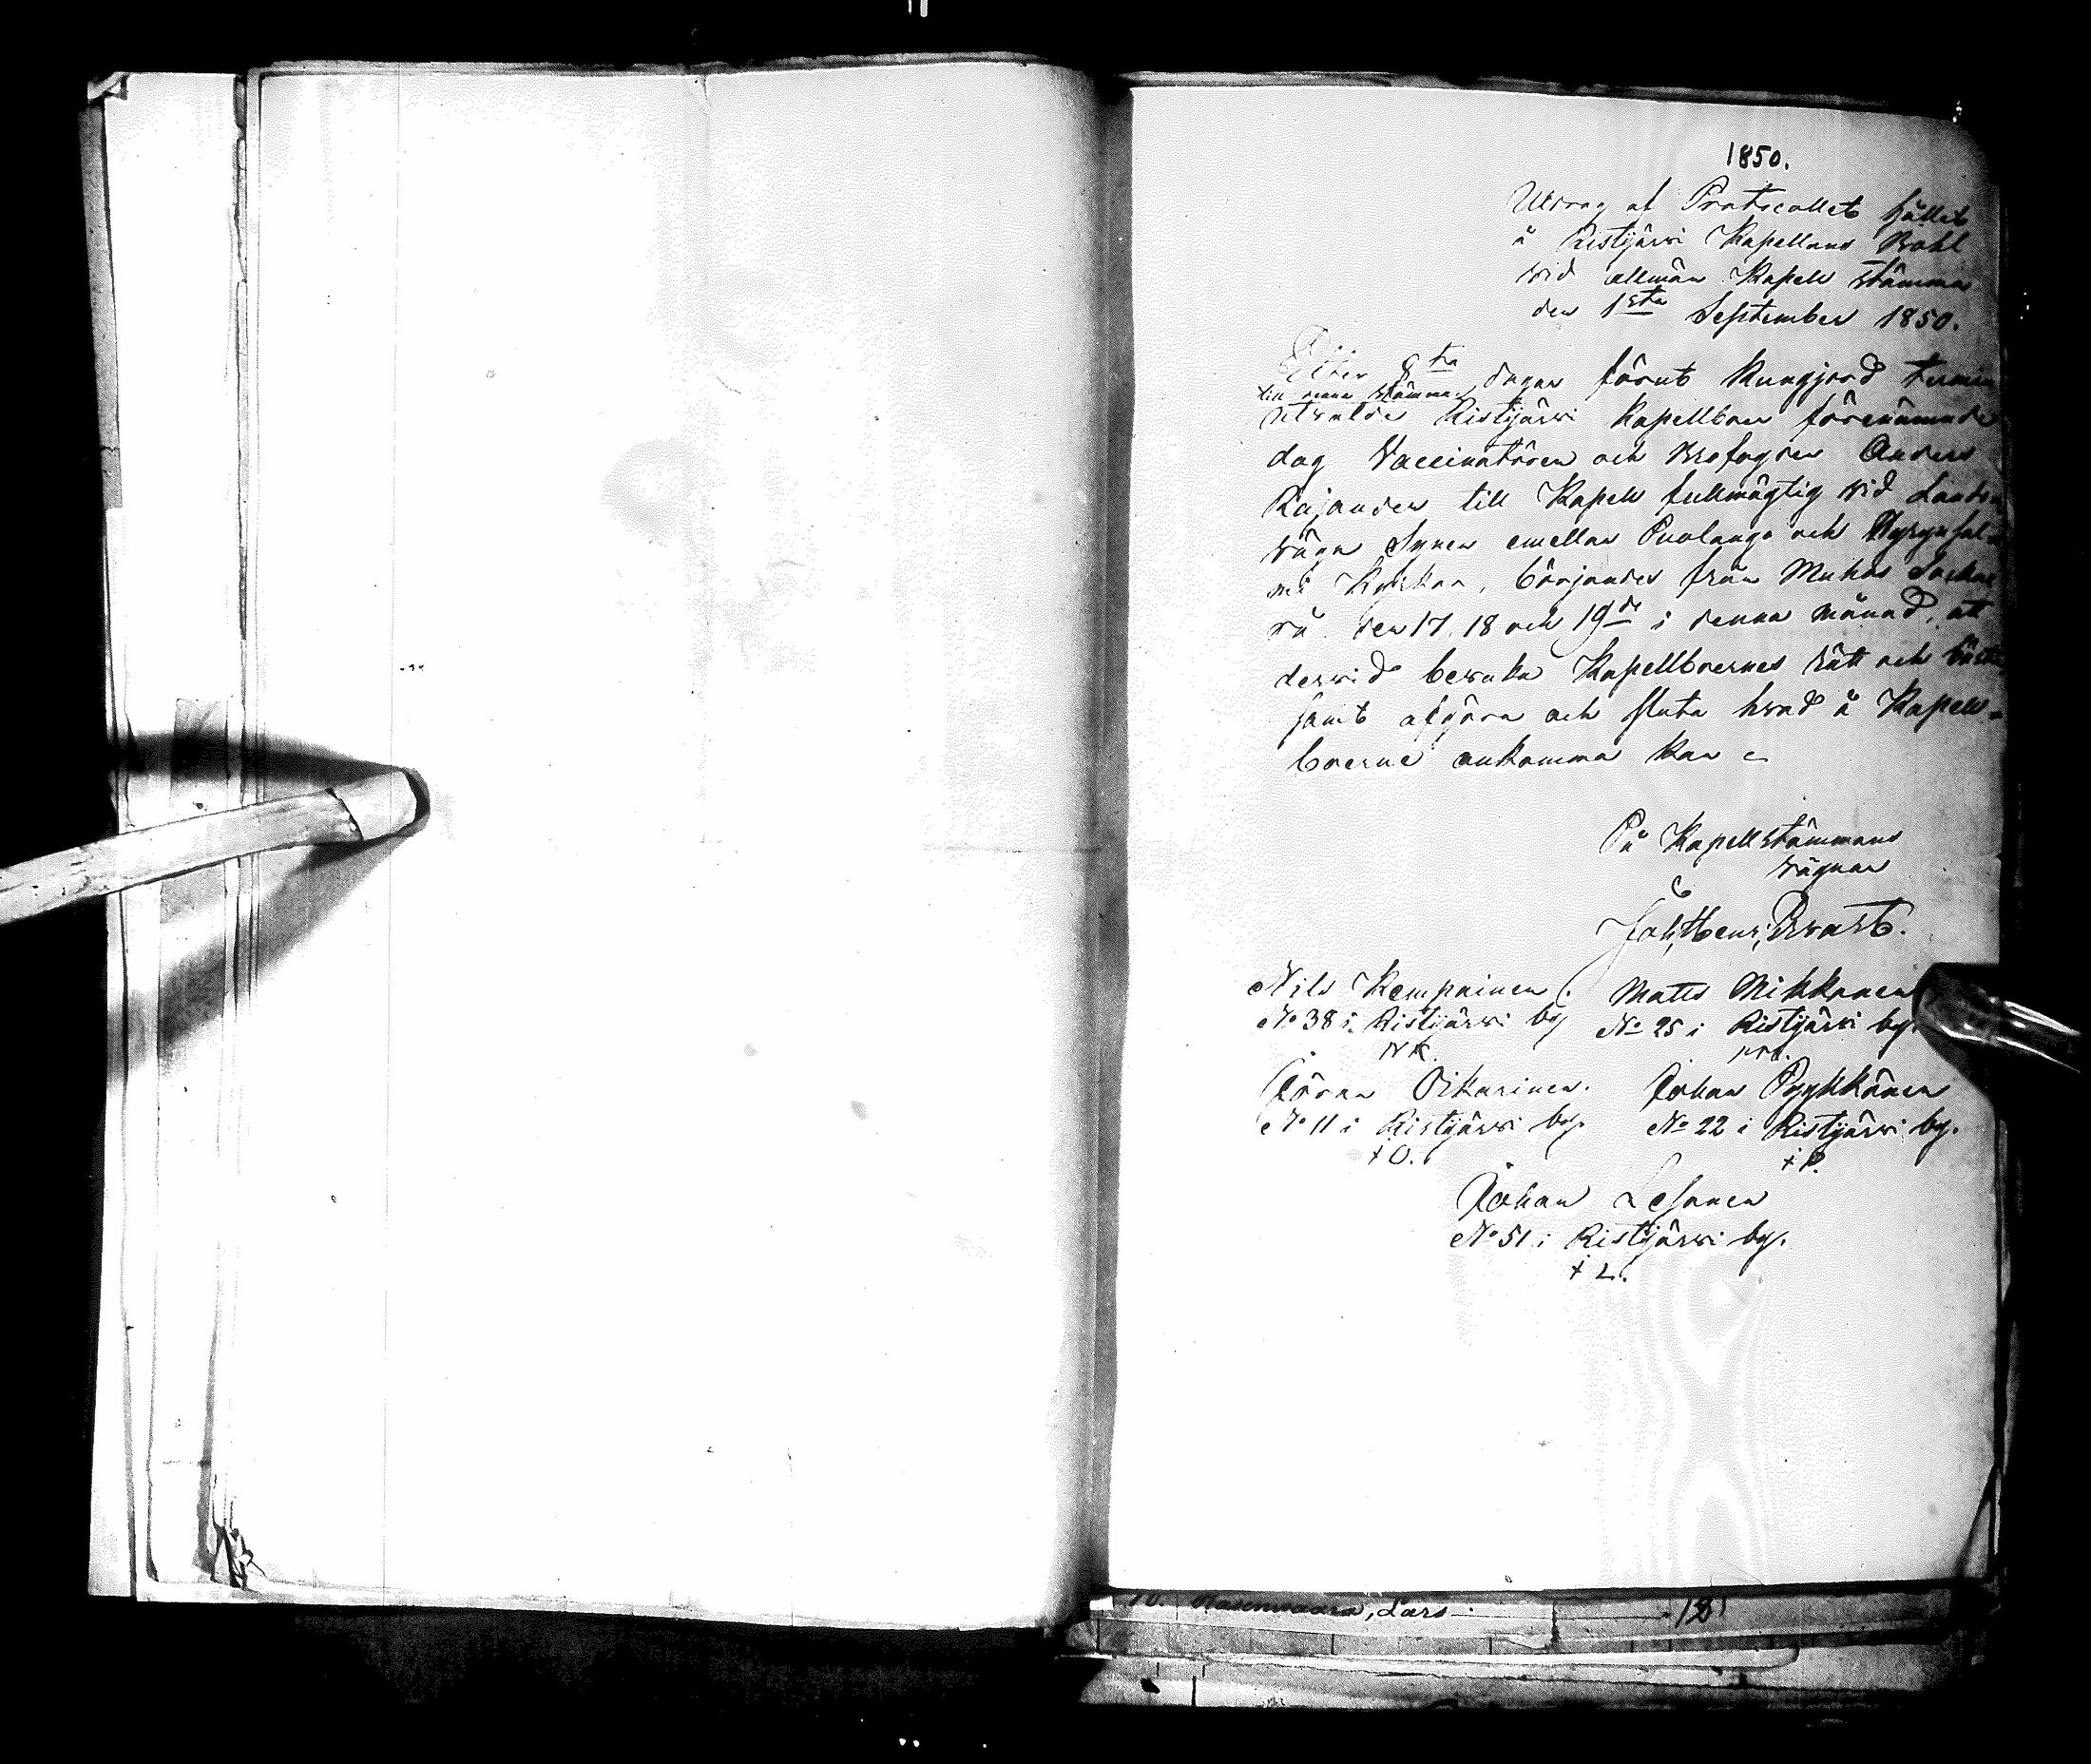 1850.
Utdrag af Protocollet hållet
å Ristijärvi Kapellans Bohl
vid allmän Kapell stämma
den 1sta September 1850.
Efter 8ta dagar förut kungjord termin
till denna stämma
utvalde Ristijärvi Kapellboer förenämnde
dag Vaccinatören och Brofogden Anders
Kajander till Kapell fullmägtig vid Lands
vägs Synen emellan Puolango och Hyrynsal-
mi Kyrkor, börjandes från Muhos Sockne
rå den 17, 18 och 19de i denna månad, att
dervid bevaka Kapellboernes rätt och bästa
samt afgöra och sluta hvad å Kapell-
boerne ankomma kan
På Kapellstämmans
vägnar
Joh. Henr.
Nils Kempainen. Matts Mikkonen
No 38 i Ristijärvi by No 25 i Ristijärvi by.
NK.
Göran Oikarinen. Johan Pyykkönen
No 11 i Ristijärvi by. No 22 i Ristijärvi by.
+ O. + P.
Johan Lesonen
No 51 i Ristijärvi by.
+ L.
Lars 12